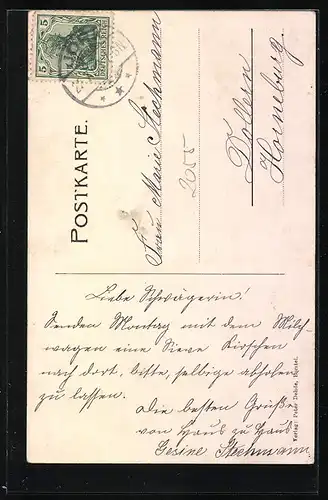 5
5
DEUTSCHES REICH
POSTKARTE.
Frau Marie Stechmann
2055
Dollern
Horneburg.
Liebe Schwägerin!
Senden Montag mit dem Milch-
wagen eine Sieve Kirschen
nach dort, bitte, selbige abholen
zu lassen.
Die besten Grüße
von Haus zu Haus
Gesine Stechmann
Verlag: Peter Dehde,